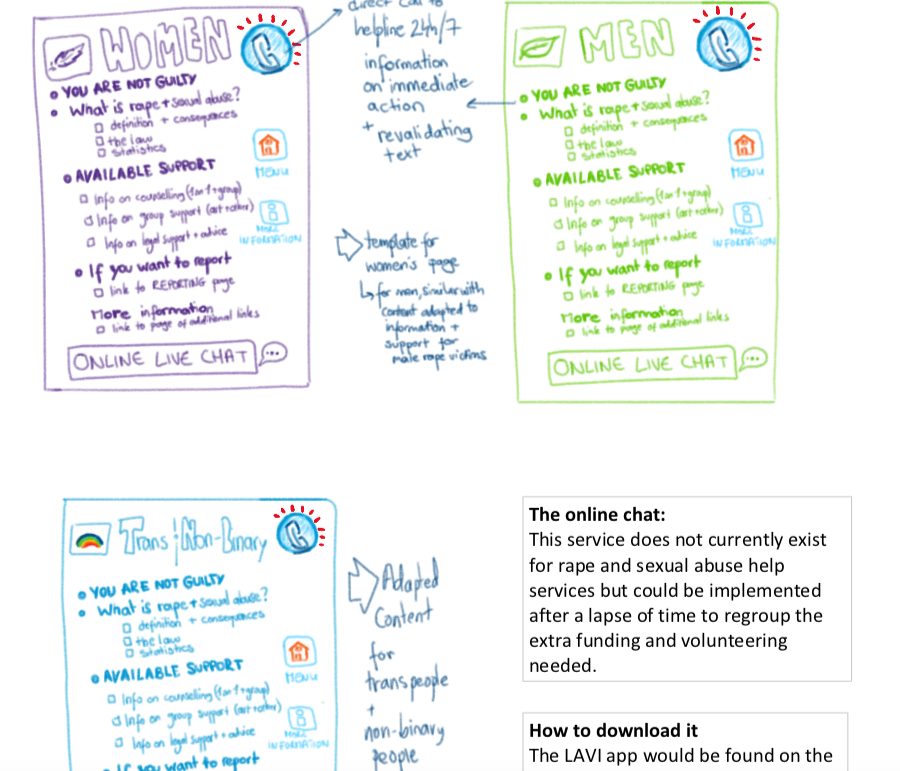 WOMEN
• YOU ARE NOT GUILTY
• What is rape + sexual abuse?
definition + consequences
the law
statistics
• AVAILABLE SUPPORT
Info on counselling (1 on 1 + group)
Info on group support (art + other)
Info on legal support + advice
• If you want to report
link to REPORTING page
More information
link to page of additional links
ONLINE LIVE CHAT
MENU
MORE
INFORMATION
direct call to
helpline 24h/7
information
on immediate
action
+
revalidating
text
template for
women's page
for men, similar with
content adapted to
information +
support for
male rape victims
MEN
• YOU ARE NOT GUILTY
• What is rape + sexual abuse?
definition + consequences
the law
statistics
• AVAILABLE SUPPORT
Info on counselling (1 on 1 + group)
Info on group support (art + other)
Info on legal support + advice
• If you want to report
link to REPORTING page
More information
link to page of additional links
ONLINE LIVE CHAT
MENU
MORE
INFORMATION
Trans | Non-Binary
• YOU ARE NOT GUILTY
• What is rape + sexual abuse?
definition + consequences
the law
statistics
• AVAILABLE SUPPORT
Info on counselling (1 on 1 + group)
Info on group support (art + other)
Info on legal support + advice
• If you want to report
MENU
MORE
INFORMATION
Adapted
Content
for
trans people
+
non-binary
people
The online chat:
This service does not currently exist
for rape and sexual abuse help
services but could be implemented
after a lapse of time to regroup the
extra funding and volunteering
needed.
How to download it
The LAVI app would be found on the